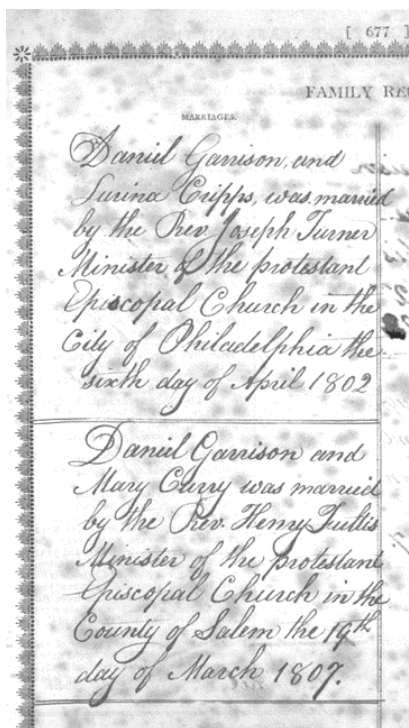 [ 677 ]
FAMILY REC
MARRIAGES.
Daniel Garrison, and
Surina Cripps, was married
by the Rev. Joseph Turner
Minister of the protestant
Episcopal Church in the
City of Philadelphia the
sixth day of April 1802
Daniel Garrison and
Mary Curry was married
by the Rev. Henry
Minister of the protestant
Episcopal Church in the
County of Salem the 19th
day of March 1807.